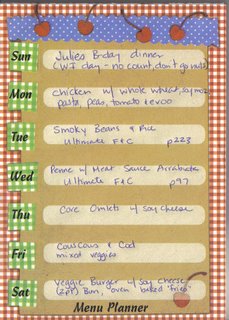 Sun
Julies B-day dinner
(WI day - no count, don't go nuts)
Mon
chicken w/ whole wheat, soy moz
pasta, peas, tomato & evoo
Tue
Smoky Beans & Rice
Ultimate F&C p223
Wed
Penne w/ Meat Sauce Arrabiata
Ultimate F&C p97
Thu
Core Omlets w/ soy cheese
Fri
Couscous & Cod
mixed veggies
Sat
Veggie Burger w/ soy cheese
(2pt) Bun, "oven" baked "fries"
Menu Planner